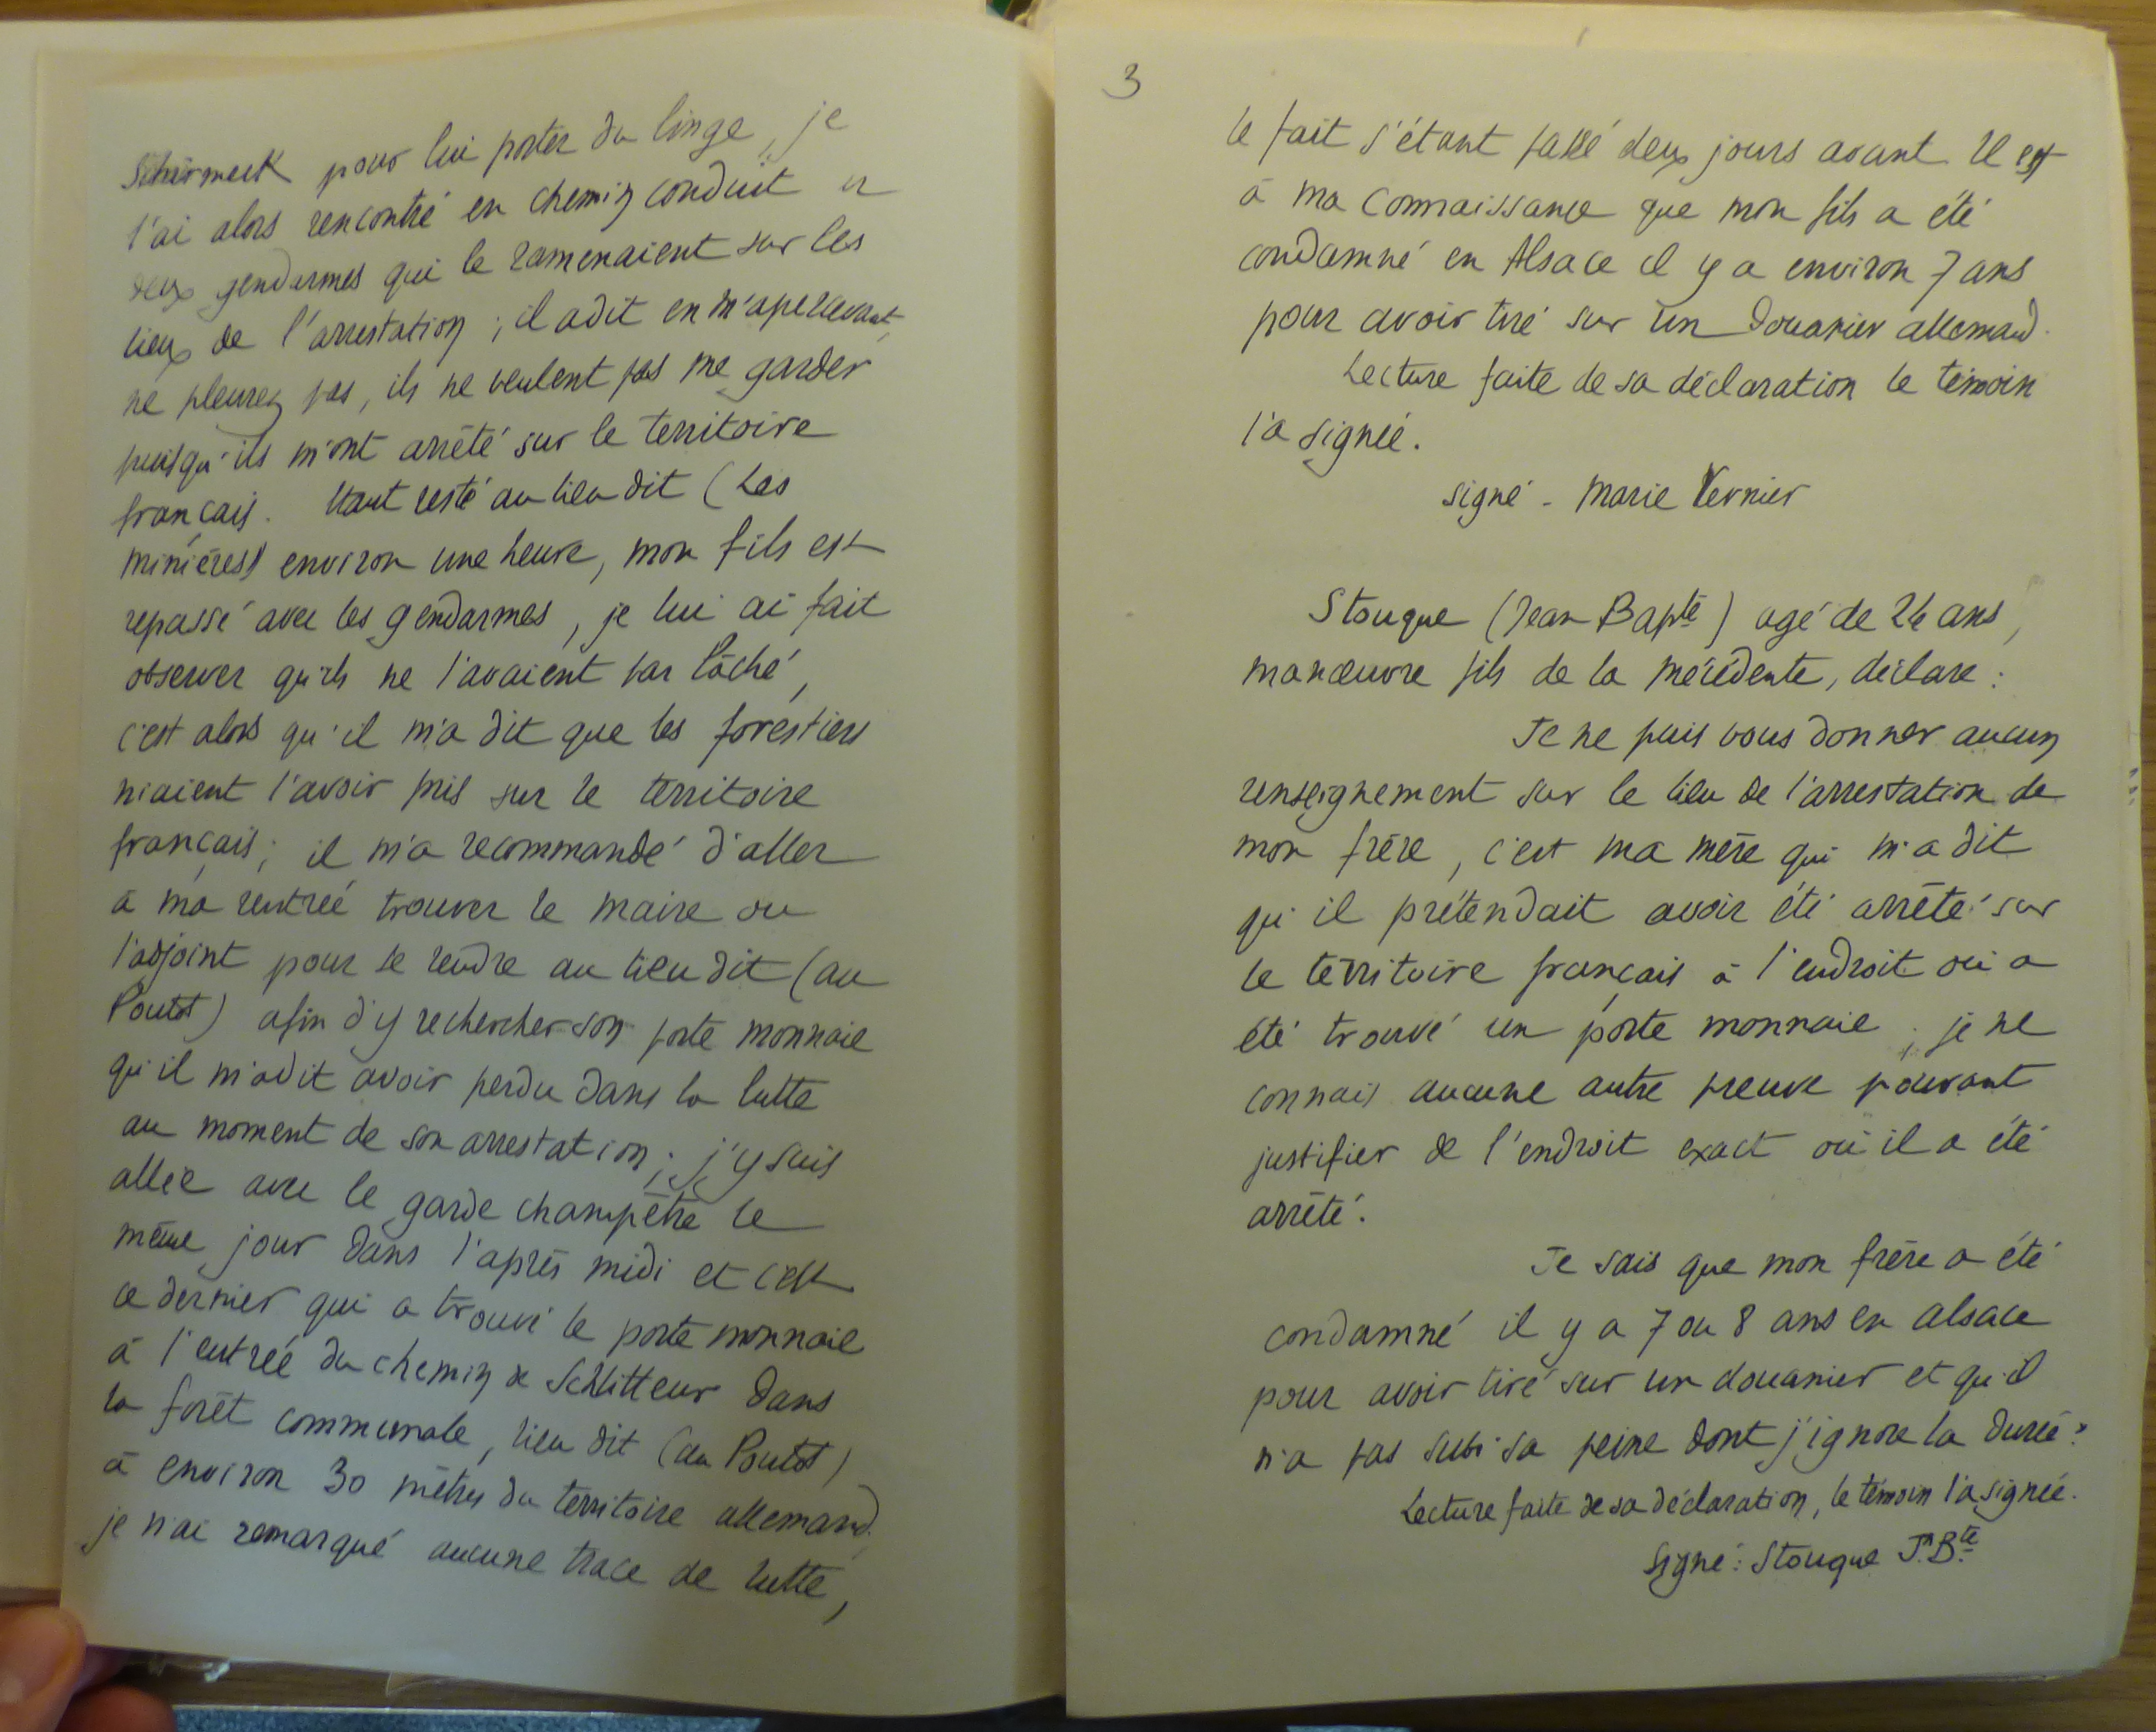 Schirmeck pour lui porter du linge, je
l'ai alors rencontré en chemin conduit
deux gendarmes qui le ramenaient sur les
lieux de l'arrestation ; il a dit en m'apercevant,
ne pleurez pas, ils ne veulent pas me garder
puisqu'ils m'ont arrêté sur le territoire
français. Etant resté au lieu dit (Les
minières) environ une heure, mon fils est
repassé avec les gendarmes, je lui ai fait
observer qu'ils ne l'avaient pas lâché,
c'est alors qu'il m'a dit que les forestiers
niaient l'avoir pris sur le territoire
français ; il m'a recommandé d'aller
à ma rentrée trouver le maire ou
l'adjoint pour se rendre au lieu dit (au
Poutot) afin d'y rechercher son porte monnaie
qu'il m'a dit avoir perdu dans la lutte
au moment de son arrestation ; j'y suis
allée avec le garde champêtre le
même jour dans l'après midi et c'est
ce dernier qui a trouvé le porte monnaie
à l'entrée du chemin de Schlitteur dans
la forêt communale, lieu dit (au Poutot)
à environ 30 mètres du territoire allemand,
je n'ai remarqué aucune trace de lutte,
3
le fait s'étant passé deux jours avant. Il est
à ma connaissance que mon fils a été
condamné en Alsace il y a environ 7 ans
pour avoir tiré sur un Douanier allemand.
Lecture faite de sa déclaration le témoin
l'a signée.
signé - Marie Vernier
Stouque (Jean Bapte) agé de 24 ans,
manœuvre fils de la précédente, déclare :
Je ne puis vous donner aucun
renseignement sur le lieu de l'arrestation de
mon frère, c'est ma mère qui m'a dit
qu'il prétendait avoir été arrêté sur
le territoire français à l'endroit où a
été trouvé un porte monnaie, je ne
connais aucune autre preuve pouvant
justifier de l'endroit exact où il a été
arrêté.
Je sais que mon frère a été
condamné il y a 7 ou 8 ans en alsace
pour avoir tiré sur un douanier et qu'il
n'a pas subi sa peine dont j'ignore la durée.
Lecture faite de sa déclaration, le témoin l'a signée.
Signé : Stouque Jn Bte